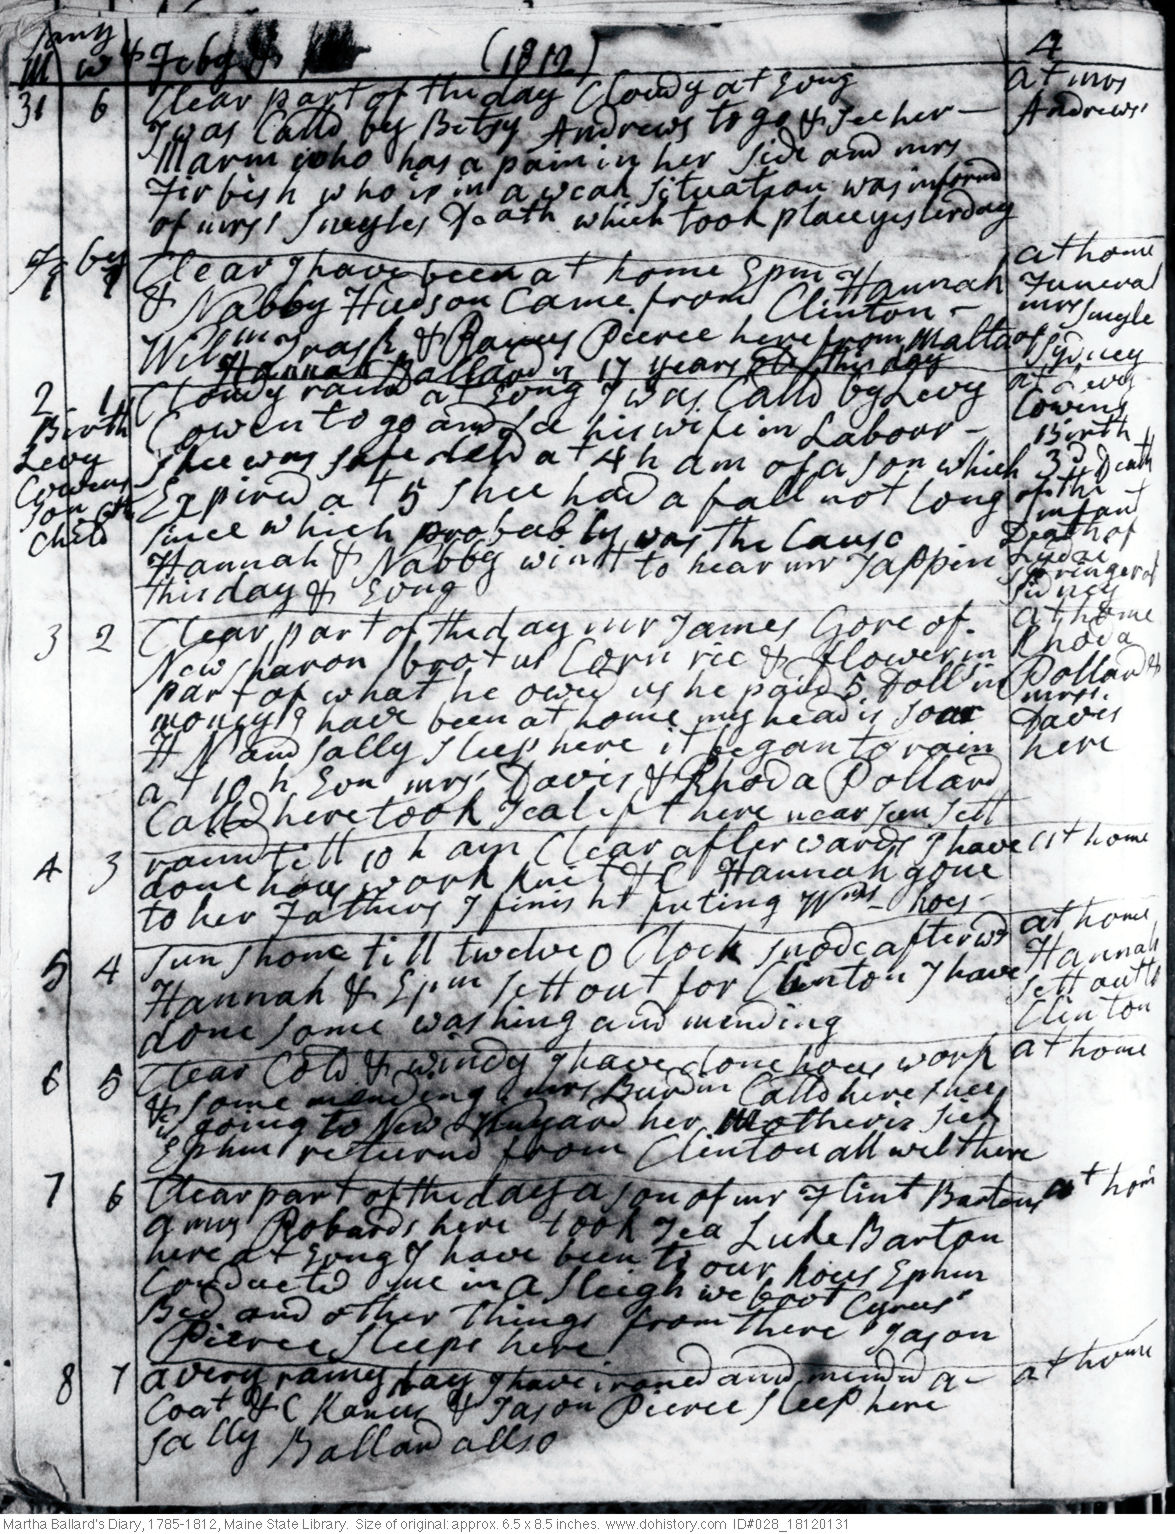 Jany
m w & Feby (1812) 4
31 6 Clear part of the day Cloudy at Evng
I was Calld by Betsy Andrews to go & see her
Marm who has a pain in her side and mrs
Firbish who is in a weak situation was informd
of mrs Death which took place yesterday
at mrs
Andrews'
1 Clear I have been at home Epm Hannah
& Nabby Hudson Came from Clinton
Wilm Trask & Pierce here from Malta
Hannah Ballard is 17 years old this day
at home
Funeral
mrs
of
Sydney
2 1 Cloudy raind at Evng I was Calld by Levy
Cowen to go and se his wife in Labour
Shee was safe deld at 4 h am of a son which
Expired at 5 shee had a fall not long
since which probably was the Cause
Hannah & Nabby wint to hear mr Tappin
this day & Evng
Birth
Levy
Cowens
son 6th
Child
at Levy
Cowins
Birth
3d Death
of the
infant
Death of
Springer of
Sidney
3 2 Clear part of the day mr James Gore of
New sharon brot us Corn rie & flower in
part of what he owed us he paid 5 Doll in
money I have been at home my head is soar
H N and Sally sleep here it began to rain
at 10 h Evn mrs Davis & Rhoda Pollard
Calld here took Tea left here near sun sett
at home
Rhoda
Pollard &
mrs
Davis
here
4 3 raind till 10 h am Clear afterwards I have
done hous work knit &C Hannah gone
to her Fathers I finisht puting Wms hoes
at home
5 4 sun shone till twelve O Clock snode afterwd
Hannah & Epm sett out for Clinton I have
done some washing and mending
at home
Hannah
sett out to
Clinton
6 5 Clear Cold & windy I have done hous work
& some mending mrs Burdin Calld here shee
is going to New her Mother is sick
Ephm returned from Clinton all wel there
at home
7 6 Clear part of the day a son of mr Flint Bartons
Robards here took Tea Luke Barton
here at Evng I have been to our hous Ephm
Conducted me in a sleigh we brot Cyrus'
Bed and other things from there Jason
Pierce sleeps here
at hom
8 7 a very rainy day I have ironed and mended a
Coat &C & Jason Pierce sleep here
Sally Ballard allso
at home
Martha Ballard's Diary, 1785-1812, Maine State Library. Size of original: approx. 6.5 x 8.5 inches. www.dohistory.com ID#028_18120131